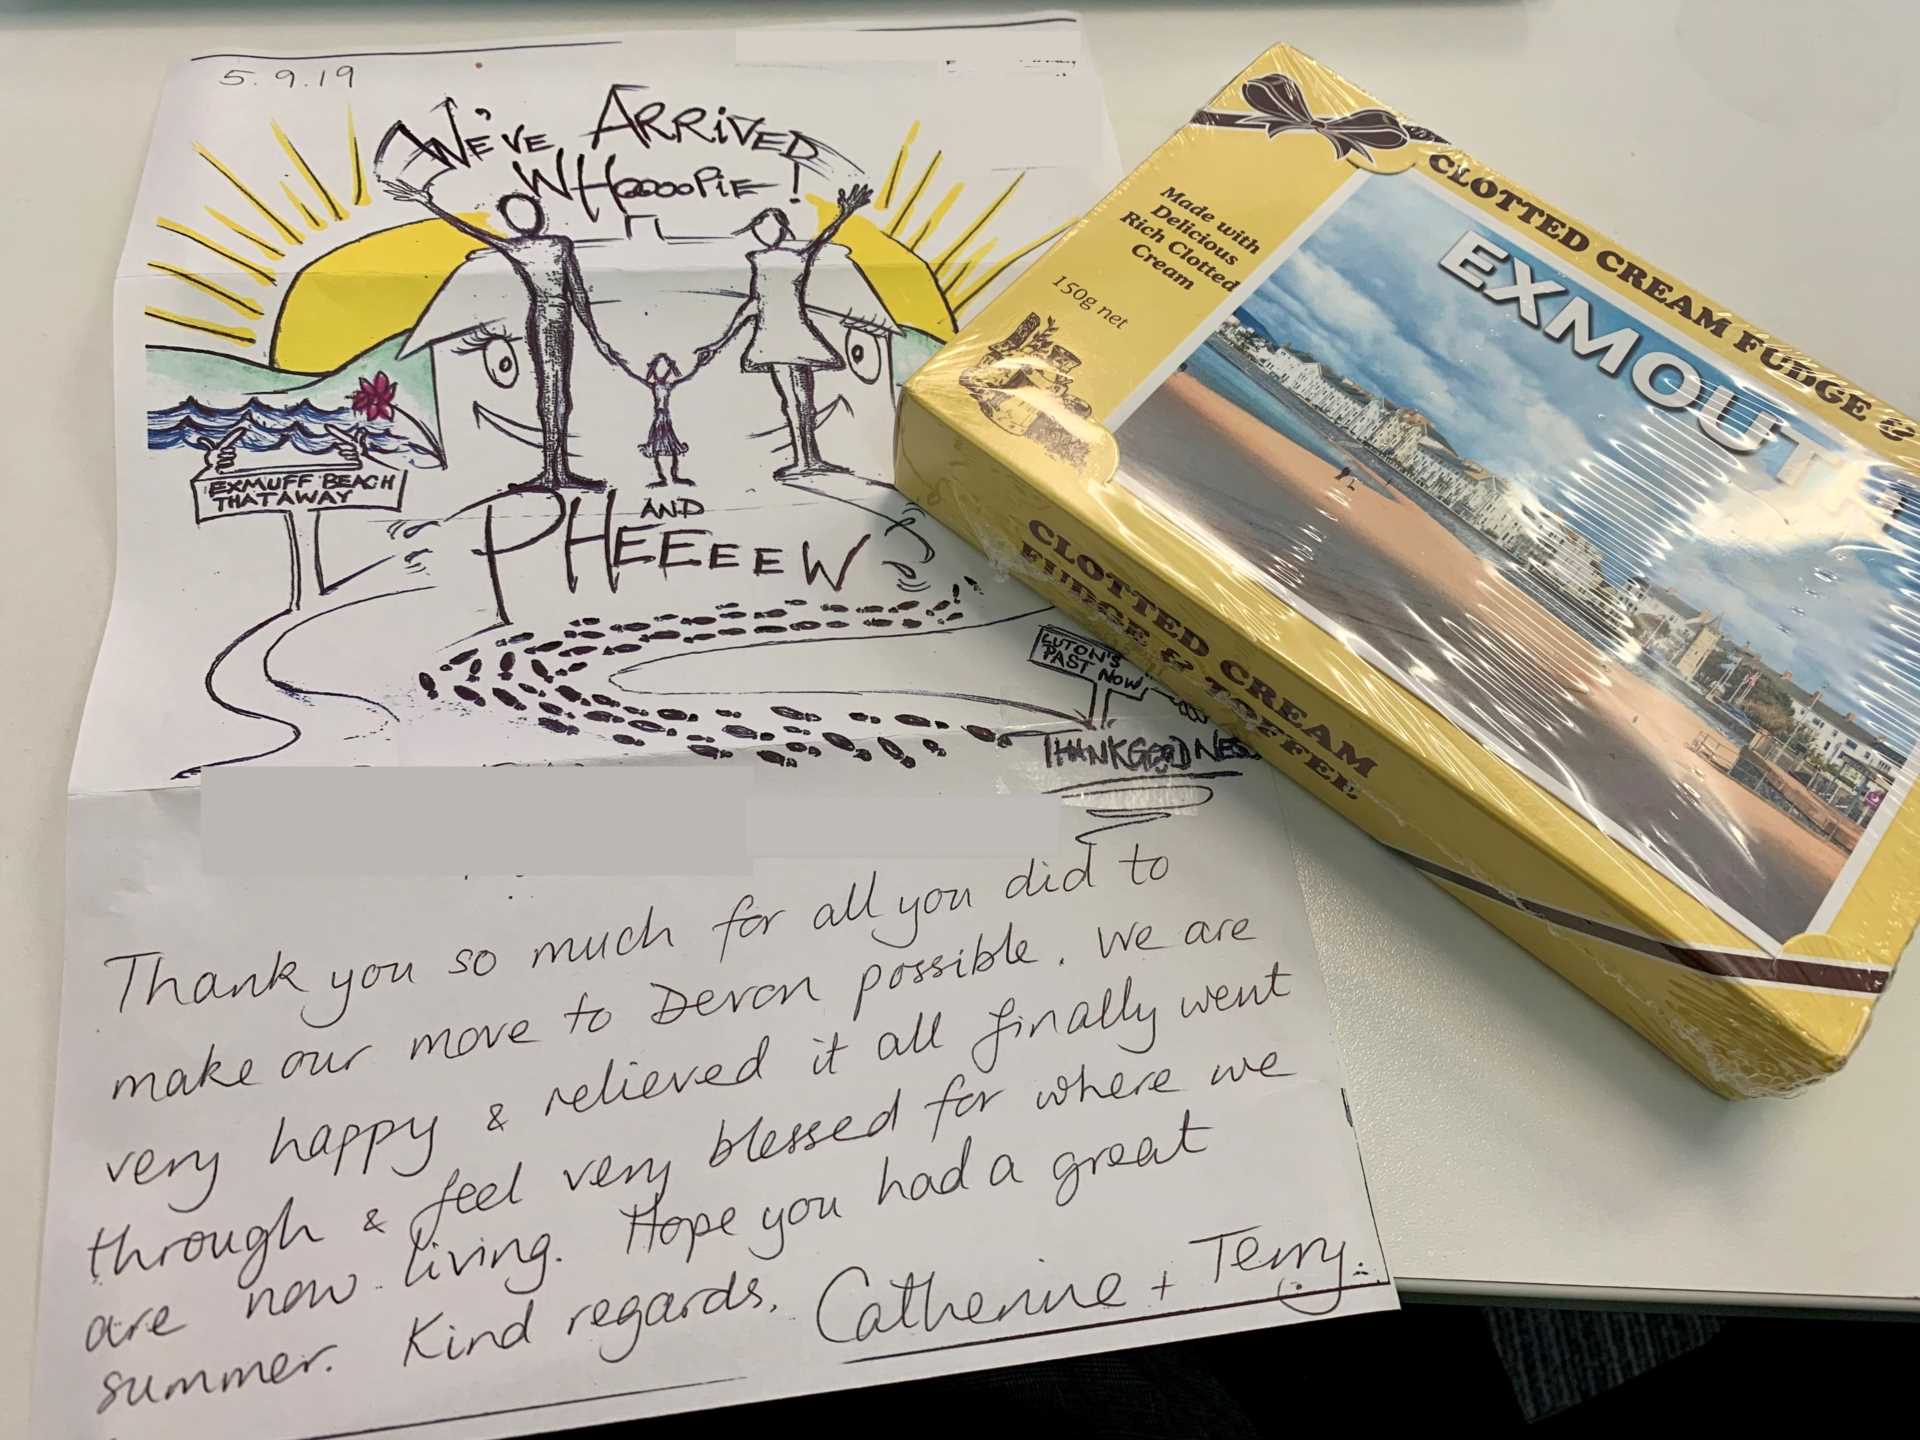 5.9.19
WE'VE ARRIVED
WHOOOOPIE!
EXMUFF BEACH
THATAWAY
AND
PHEEEEEW
LUTON'S
PAST NOW
THANKGOODNESS
Thank you so much for all you did to
make our move to Devon possible. We are
very happy & relieved it all finally went
through & feel very blessed for where we
are now living. Hope you had a great
summer. Kind regards, Catherine + Terry.
CLOTTED CREAM FUDGE &
Made with
Delicious
Rich Clotted
Cream
150g net
EXMOUTH
CLOTTED CREAM
FUDGE & TOFFEE